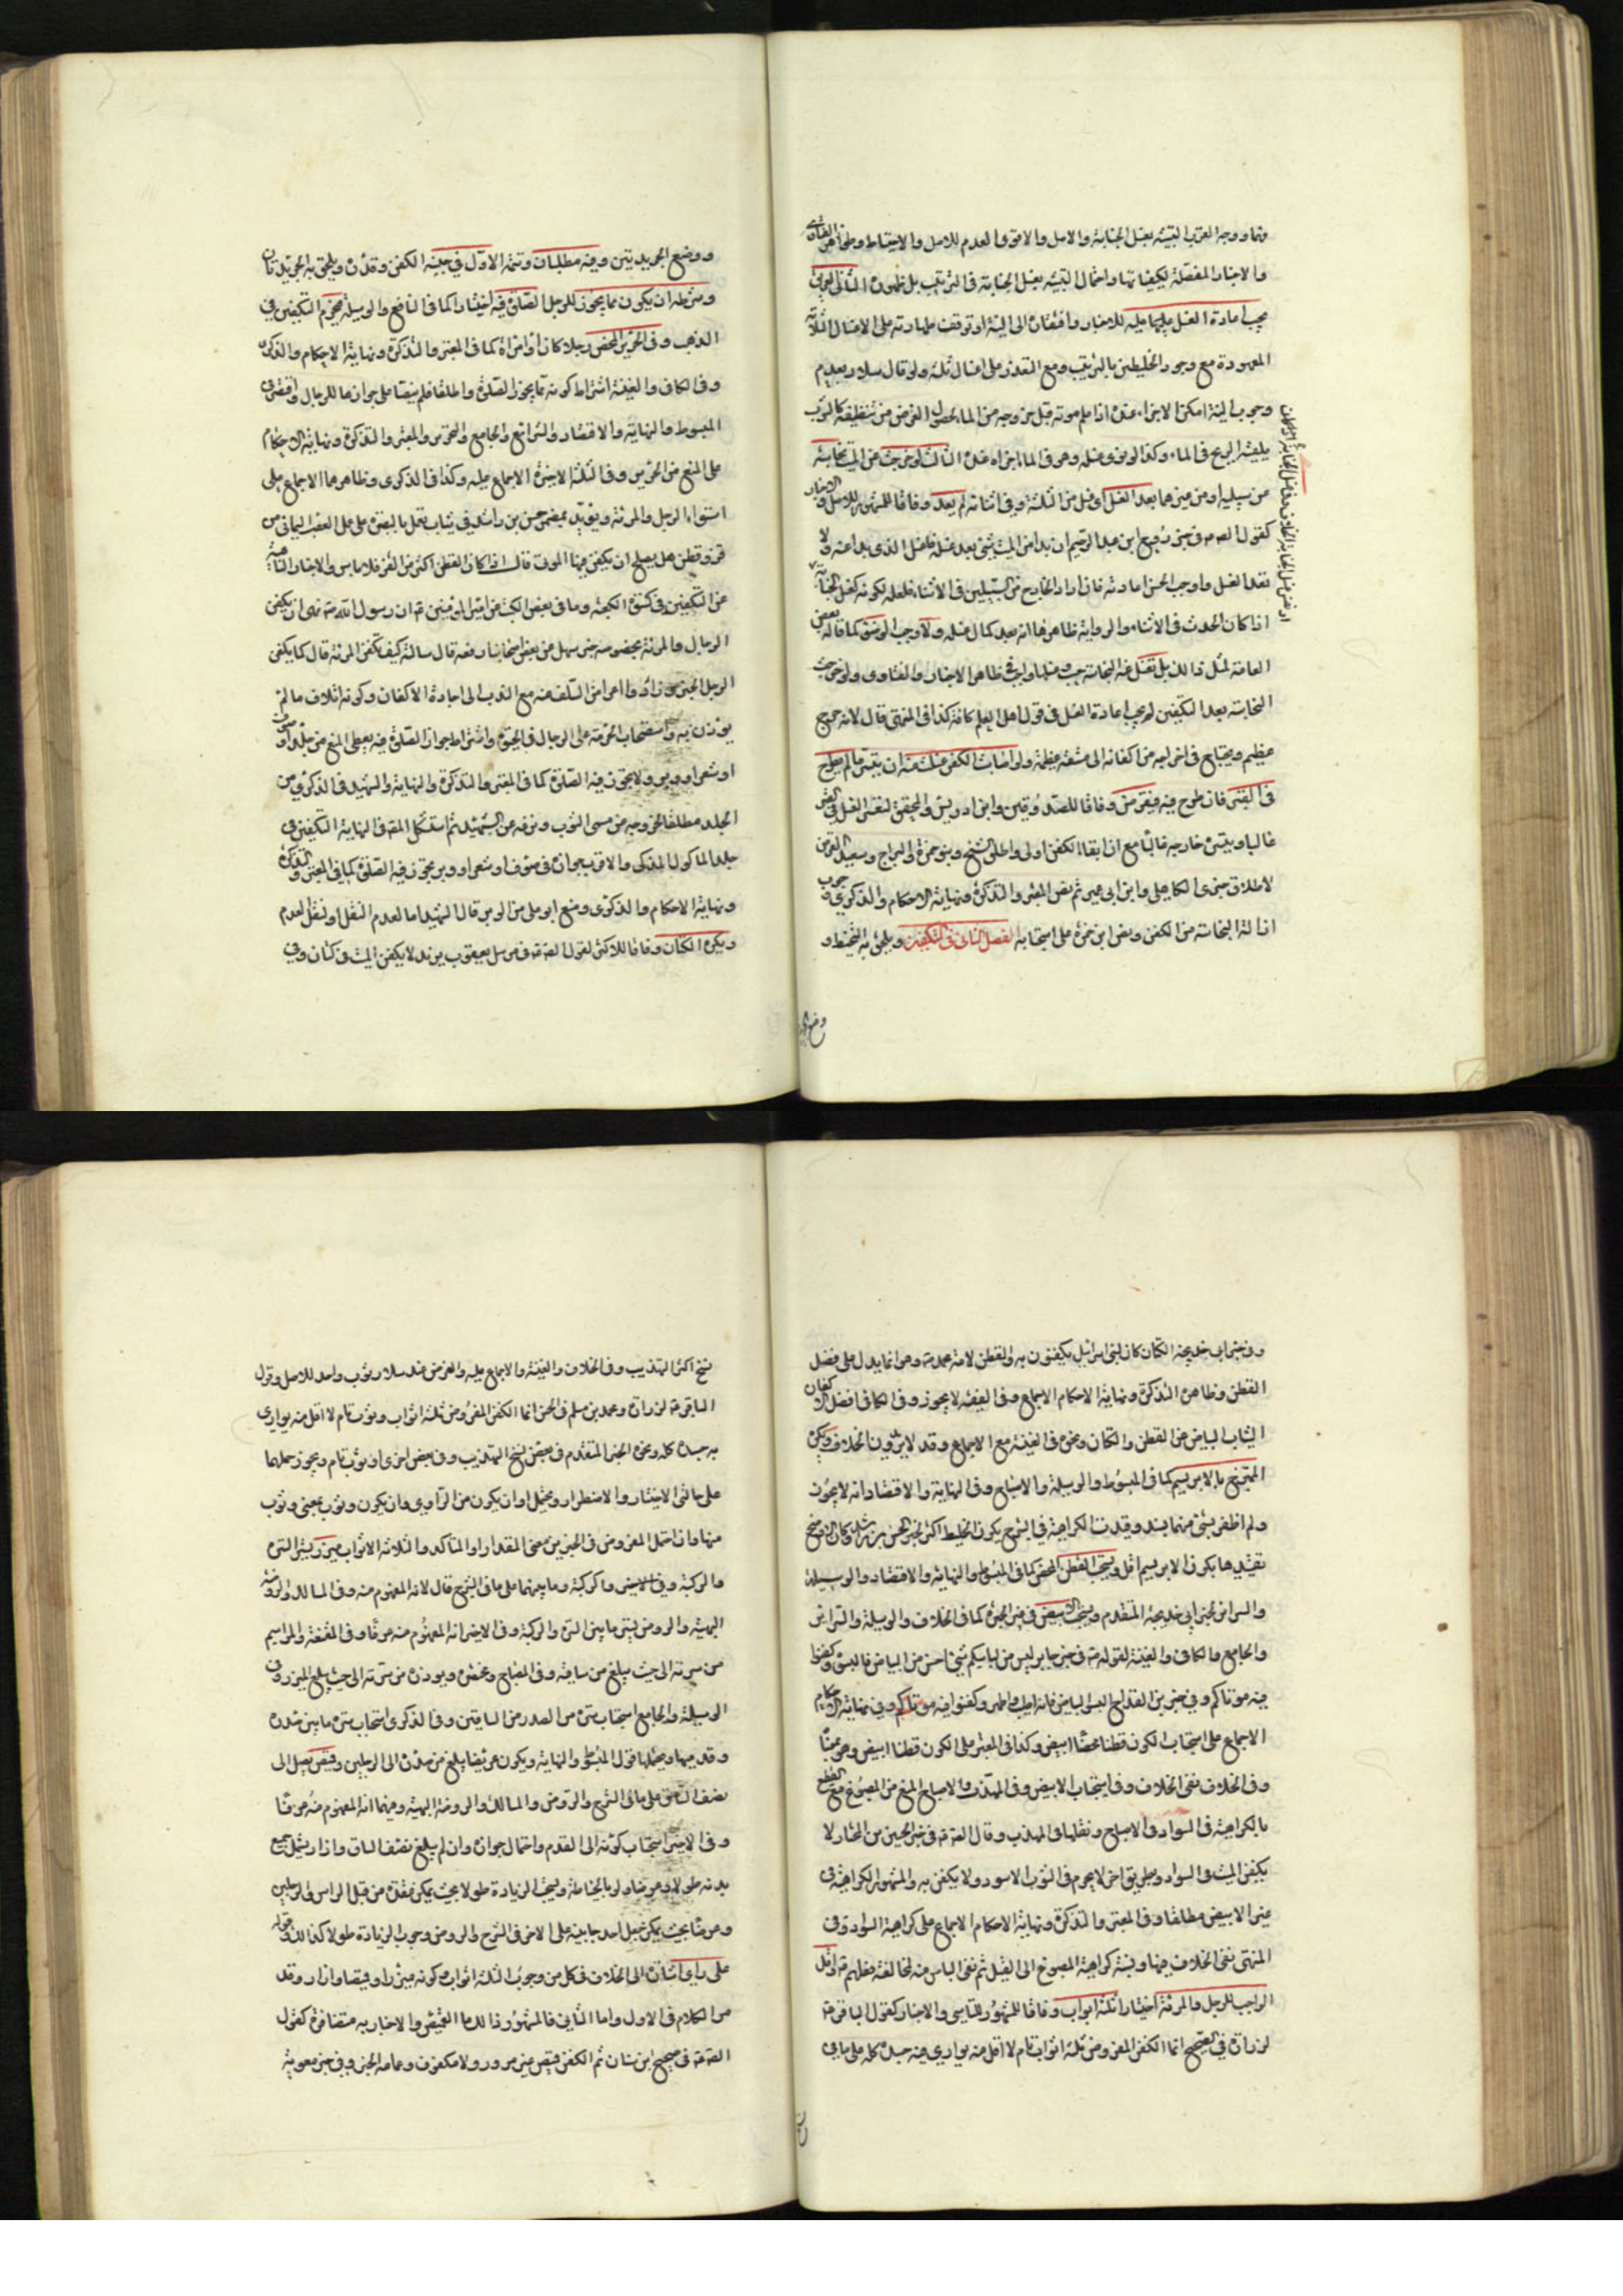 ونهاو وجه القرب التشبيه بغسل الجنابة والاصل والاقوى العدم للاصل والاحتياط وظاهر الفتاوى
والاخبار المفصّلة لكيفياتها واحتمال التشبيه بغسل الجنابة في الترتيب بل ظهوره الثاني الغريق
يجب اعادة الغسل عليه للاخبار وافتقاره الى النية او توقف طهارته على الاغسال الثلاثة
المعهودة مع وجود الخليطين بالترتيب ومع التعذر على اغسال ثلثة ولو قال سلار بعدم
وجوب النية امكن الاجزاء عنده اذا علم موته قبل خروجه من الماء لحصول الغرض من تنظيفه كالثوب
يلقيه الريح في الماء وكذا لو نوى غسله وهو في الماء اجزاه عنده الثالث لو خرجت من الميت نجاسة
من سبيليه او من غيرهما بعد الغسل او قبل من الثلثة وفي اثنائه لم يعد وفاقا للمشهور للاصل والاخبار
كقول الصادق في خبر روح ابن عبد الرحيم ان بدا من الميت شيء بعد غسله فاغسل الذي بدا منه ولا
تعد الغسل واوجب الحسن اعادته فان اراد الخارج من السبيلين في الاثناء فلعله لكونه كغسل الجنابة
اذا كان الحدث في الاثناء والرواية ظاهرها انه بعد كمال غسله ولا وجب الوضوء كما قاله بعض
العامة لمثل ذلك بل تغسل النجاسة حيث ظاهر الاخبار والفتاوى ولو خرجت
النجاسة بعد التكفين لم يجب اعادة الغسل في قول اهل العلم كافة كذا في المنتهى قال لانه حرج
عظيم ويحتاج في اخراجه من اكفانه الى مشقة عظيمة ولو اصابت الكفن غسلت منه ان يتيسر مالم يطرح
في القبر فان طرح فيه فيقرض وفاقا للصدوقين وابن ادريس والمحقق لتعسر الغسل في القبر
غالبا ويتيسر خارجه غالبا مع ان ابقاء الكفن اولى واطلق الشيخ وبنو حمزة والبراج وسعيد القرض
لاطلاق خبري الكاهلي وابن ابي عمير ثم نص المعتبر والتذكرة ونهاية الاحكام والذكرى وجوب
ازالة النجاسة من الكفن ونص ابن حمزة على استحبابه الفصل الثاني في التكفين ويلحق به التحنيط و
وضع
ووضع الجريدتين وفيه مطلبان وتتمة الاول في جنس الكفن وقدره ويلحق به الجريدتان
وشرطه ان يكون مما يجوز للرجل الصلوة فيه اختيارا كما في النافع والوسيلة فيحرم التكفين في
الذهب وفي الحرير المحض رجلا كان او امراة كما في المعتبر والتذكرة ونهاية الاحكام والذكرى
وفي الكافي والغنية اشتراط كونه مما يجوز الصلوة واطلقا فلم ينصّا على جوازها للرجال واقتصر في
المبسوط والنهاية والاقتصاد والشرائع والجامع والتحرير والمعتبر والتذكرة ونهاية الاحكام
على المنع من الحرير وفي الثلثة الاخيرة الاجماع عليه وكذا في الذكرى وظاهرها الاجماع على
استواء الرجل والمرئة ويؤيده مضمر حسن بن راشد في ثياب تعمل بالبصرة على عمل العصب اليماني من
قز وقطن هل يصلح ان يكفن فيها الموتى قال اذا كان القطن اكثر من القز فلا باس والاخبار الناهية
عن التكفين في كسوة الكعبة وما في بعض الكتب من امير المؤمنين ع ان رسول الله ص نهى ان يكفن
الرجال والمرئة بخصوصه خبر سهل عن بعض اصحابنا رفعه قال سالته كيف تكفن المرئة قال كما يكفن
الرجل الخبر وزاد واعراض السلف عنه مع الندب الى اجادة الاكفان وكونه اتلاف مال لم
يؤذن فيه واستصحاب الحرمة على الرجال في الحيوة واشتراط جواز الصلوة فيه يعطي المنع من جلد او صوف
او شعر او وبر ولا يجوز فيه الصلوة كما في المعتبر والتذكرة والنهاية والشهيد في الذكرى من
الجلد مطلقا لخروجه من مسمى الثوب ونزعه عن الشهيد ثم استشكل المصنف في النهاية التكفين في
جلد الماكول المذكى والاقرب جوازه في صوف او شعر او وبر يجوز فيه الصلوة كما في المعتبر والتذكرة
ونهاية الاحكام والذكرى ومنع ابو علي من الوبر قال الشهيد اما لعدم النقل او لنقل العدم
ويكره الكتان وفاقا للاكثر لقول الصادق في مرسل يعقوب بن يزيد لا يكفن الميت في كتان وفي
وفي خبر ابي خديجة الكتان كان لبني اسرائيل يكفنون به والقطن لامة محمد ص وهو انما يدل على فضل
القطن وظاهر التذكرة ونهاية الاحكام الاجماع وفي الفقيه لا يجوز وفي الكافي افضل الاكفان
الثياب البياض من القطن والكتان ونحوه في الغنية مع الاجماع وقد لا يريدون الخلاف ويكره
الممتزج بالابريسم كما في المبسوط والوسيلة والاصباح وفي النهاية والاقتصاد انه لا يجوز
ولم اظفر بشيء منهما بسند وقيدت الكراهية في الشرح بكون الخليط اكثر لخبر الحسن بن راشد وكان الاوضح
تقييدها بكون الابريسم اقل ويستحب القطن المحض كما في المبسوط والنهاية والاقتصاد والوسيلة
والسرائر لخبر ابي خديجة المتقدم ويستحب الابيض في غير الحبرة كما في الخلاف والوسيلة والسرائر
والجامع والكافي والغنية لقوله ص في خبر جابر ليس من لباسكم شيء احسن من البياض فالبسوه وكفنوا
فيه موتاكم وفي خبر بن القداح البسوا البياض فانه اطيب واطهر وكفنوا فيه موتاكم وفي نهاية الاحكام
الاجماع على استحباب الكون قطنا محضا ابيض وكذا في المعتبر على الكون قطنا ابيض
وفي الخلاف نفي الخلاف وفي استحباب الابيض وفي المهذب والاصباح المنع من المصبوغ مع القطع
بالكراهية في السواد في الاصباح ونقلها في المهذب وقال الصادق ع في خبر الحسين بن المختار لا
يكفن الميت في السواد وبطريق اخر لا يحرم في الثوب الاسود ولا يكفن به والمشهور الكراهية في
غير الابيض مطلقا وفي المعتبر والتذكرة ونهاية الاحكام الاجماع على كراهية السواد وفي
المنتهى نفي الخلاف فيها ونسبة كراهية المصبوغ الى القيل ثم نفي الباس منه لمخالفة فعلهم ع واقل
الواجب للرجل والمرئة اختيارا ثلثة اثواب وفاقا للمشهور للتاسي والاخبار كقول الباقر ع
لزرارة في الصحيح انما الكفن المفروض ثلثة اثواب تام لا اقل منه يواري فيه جسده كله على ما في
نسخ اكثر التهذيب وفي الخلاف والغنية والاجماع عليه والغرض عند سلار ثوب واحد للاصل وقول
الباقر ع لزرارة ومحمد بن مسلم في الحسن انما الكفن المفروض ثلثة اثواب وثوب تام لا اقل منه يواري
به جسده كله ونحوه الخبر المتقدم في بعض نسخ التهذيب وفي بعض اخرى او ثوب تام ويجوز حملهما
على حالتي الاختيار والاضطرار ويحتمل او ان يكون من الراوي وان يكون وثوب بمعنى وثوب
منها وان احتمل المفروض في الخبرين معنى المقدار او المتاكد والثلاثة الاثواب ميزر يستر السرة
والركبة وفي الابيض والركبة وما بينهما على ما في الشرح قال لانه المفهوم منه وفي المسالك والروضة
البهية والروض يستر ما بين السرة والركبة وفي الاخير انه المفهوم منه عرفا وفي المقنعة والمراسم
من سرته الى حيث يبلغ من ساقيه وفي المصباح ومختصره ويؤزره من سرته الى حيث يبلغ الميزر وفي
الوسيلة والجامع استحباب ستره من الصدر من الساقين وفي الذكرى استحباب ستره ما بين صدره
وقدميها ويحتملها قول المبسوط والنهاية ويكون عريضا يبلغ من صدره الى الرجلين وقميص يصل الى
نصف الساق على ما في الشرح والروض والمسالك والروضة البهية وفيهما انه المفهوم منه عرفا
وفي الاخير استحباب كونه الى القدم واحتمال جوازه وان لم يبلغ نصف الساق وازار يشمل جميع
بدنه طولا وعرضا ولو بالخياطة ويستحب الزيادة طولا بحيث يمكن عقده من قبل الراس والرجلين
وعرضا بحيث يمكن جعل احد جانبيه على الاخر في الشرح والروض وجوب الزيادة طولا كذلك وقوله
على راي اشارة الى الخلاف في كل من وجوب الثلثة اثواب وكونه ميزرا وقميصا وازارا وقد
مر الكلام في الاول واما الثاني فالمشهور ذلك اما القميص والاخبار به متضافرة كقول
الصادق ع في صحيح ابن سنان ثم الكفن قميص غير مزرور ولا مكفوف وعمامة الخبر وفي خبر معوية